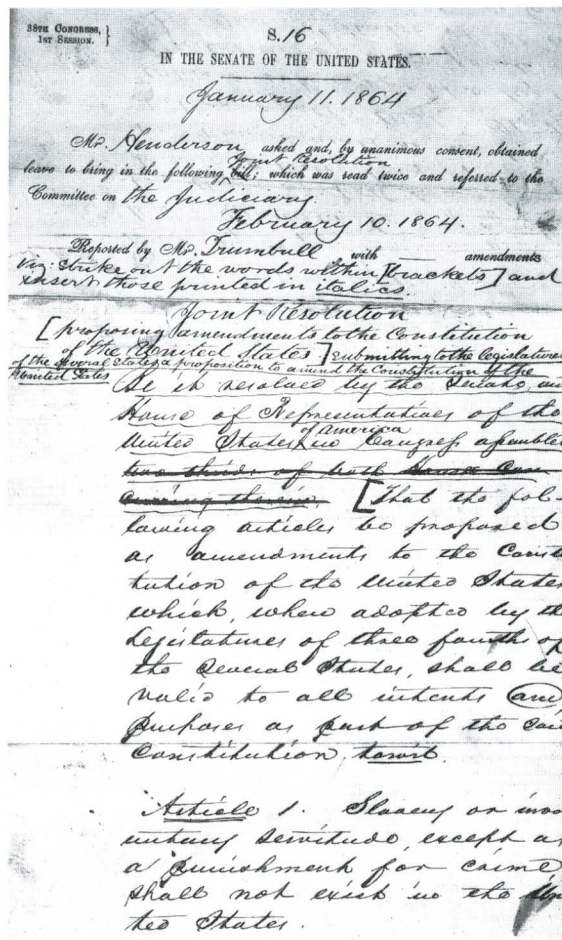 38TH CONGRESS,
1ST SESSION.
S. 16
IN THE SENATE OF THE UNITED STATES.
January 11. 1864
Mr. Henderson asked and, by unanimous consent, obtained
Joint Resolution
leave to bring in the following bill; which was read twice and referred to the
Committee on the Judiciary.
February 10. 1864.
Reported by Mr. Trumbull with amendments
viz: Strike out the words within [brackets] and
insert those printed in italics.
Joint Resolution
[proposing amendments to the Constitution
of the United States.] submitting to the legislatures
of the several States a proposition to amend the Constitution of the
United States
Be it resolved by the Senate, an
House of Representatives of the
of America
United States in Congress assemble
two thirds of both Houses con
curring therein, [That the fol-
lowing articles be proposed
as amendments to the Consti
tution of the United States
which, when adopted by th
Legislatures of three fourths of
the several States, shall be
valid to all intents and
purposes as part of the sai
Constitution, towit.
Article 1. Slavery or invo
untary servitude, except as
a punishment for crime
shall not exist in the Un
ted States.